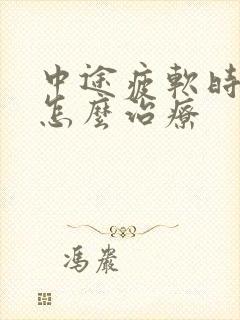 中途疲軟時
怎麼治療
馮嚴